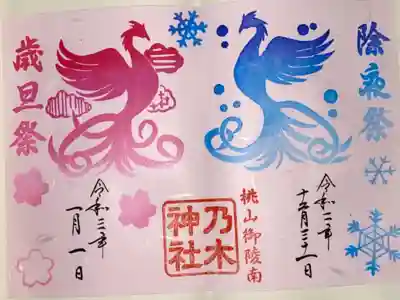 除夜祭
令和二年
十二月三十一日
桃山御陵南
乃木
神社
歳旦祭
令和三年
一月一日